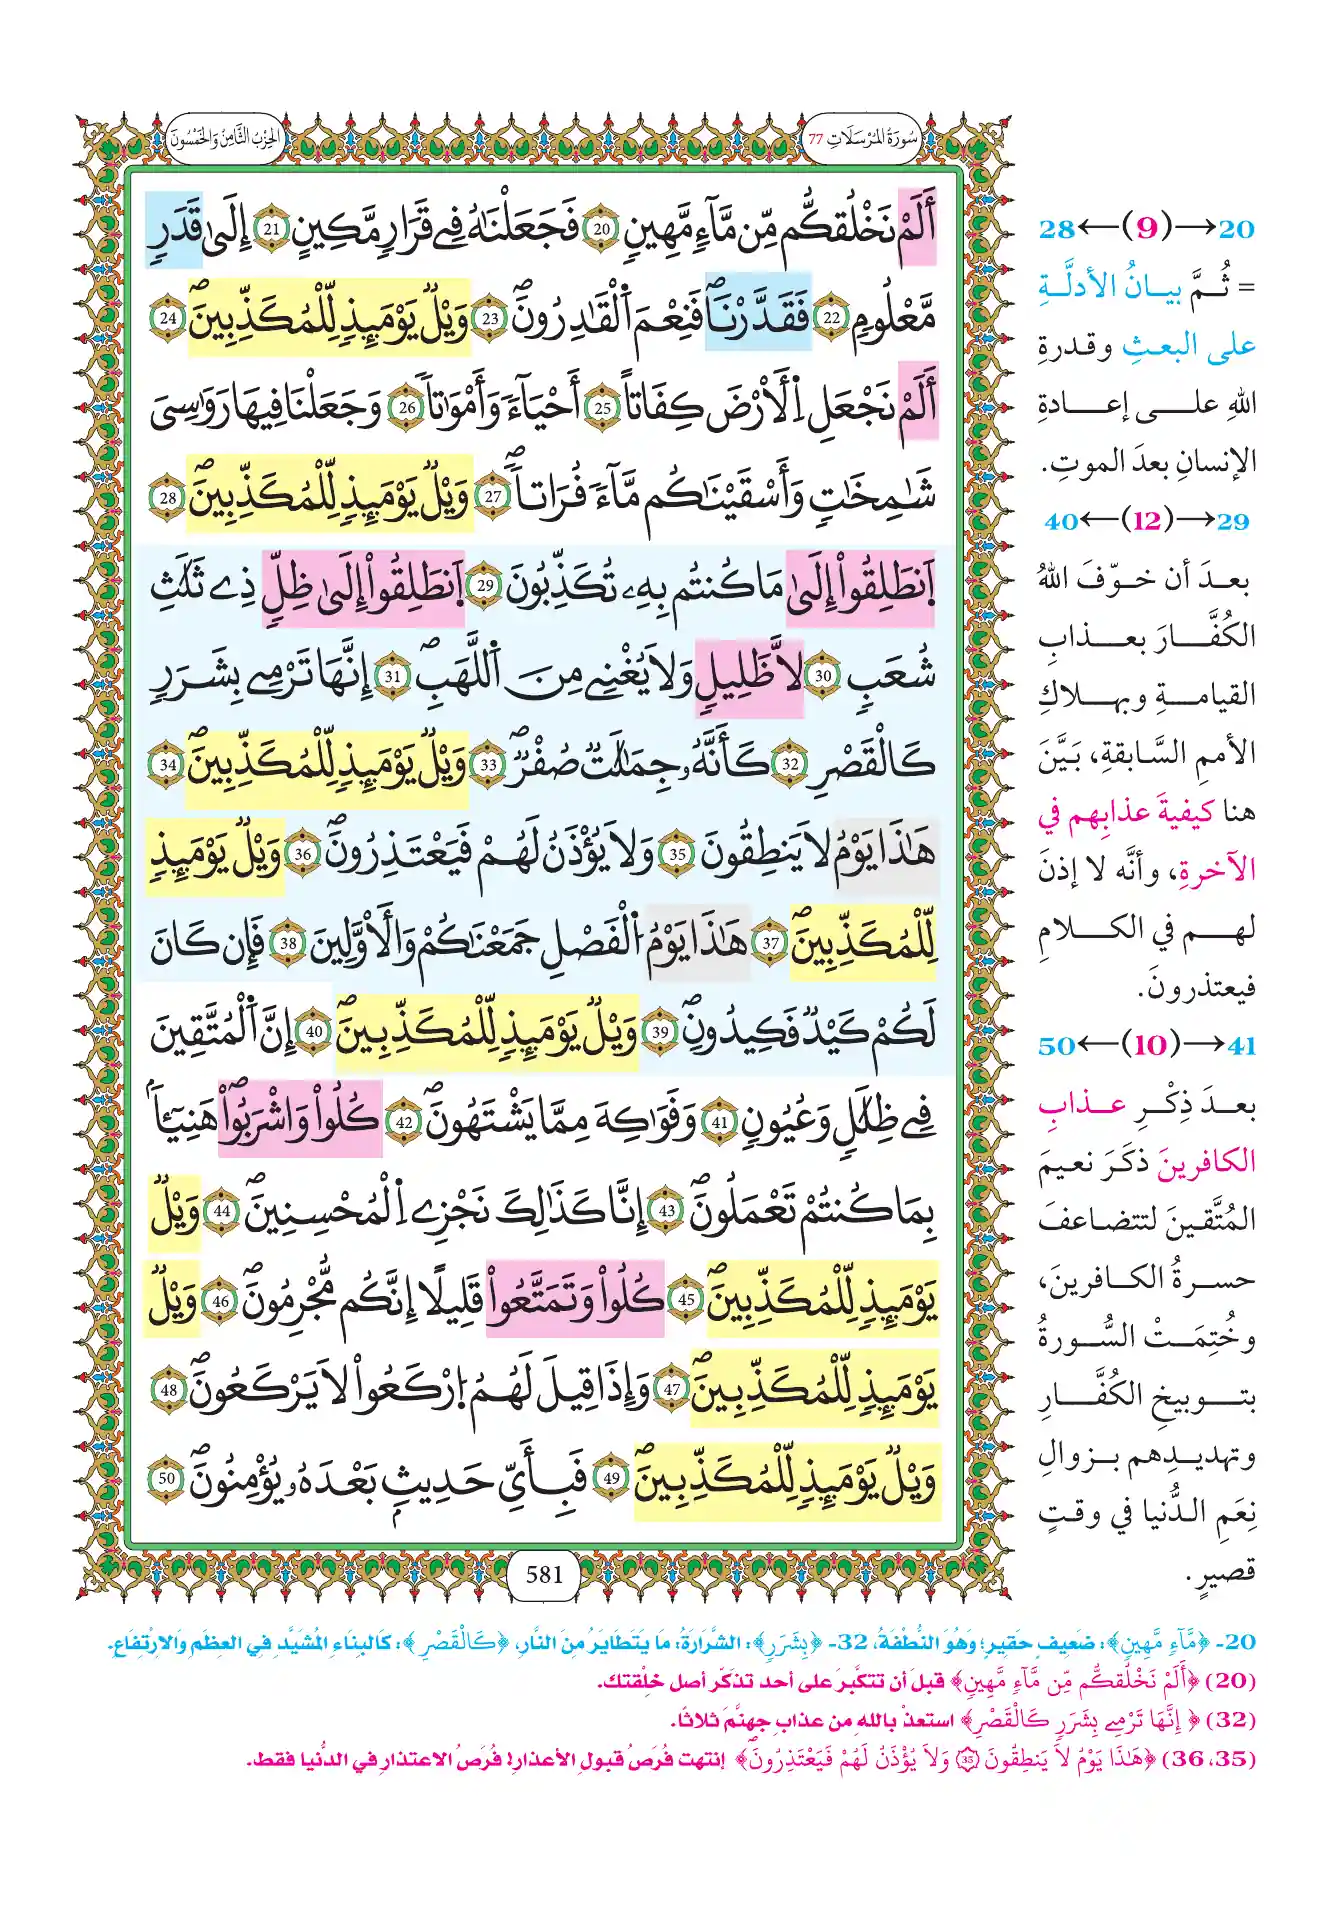 سُورَةُ المُرْسَلَاتِ 77
الحِزْبُ الثَّامِنُ وَالخَمْسُونَ
أَلَمْ نَخْلُقكُّم مِّن مَّآءٖ مَّهِينٖ 20 فَجَعَلْنَٰهُ فِے قَرَارٖ مَّكِينٍ 21 إِلَىٰ قَدَرٖ
مَّعْلُومٖ 22 فَقَدَّرْنَاۖ فَنِعْمَ اَ۬لْقَٰدِرُونَۖ 23 وَيْلٞ يَوْمَئِذٖ لِّلْمُكَذِّبِينَۖ 24
أَلَمْ نَجْعَلِ اِ۬لْأَرْضَ كِفَاتاً 25 أَحْيَآءٗ وَأَمْوَٰتاٗ 26 وَجَعَلْنَا فِيهَا رَوَٰسِىَ
شَٰمِخَٰتٖ وَأَسْقَيْنَٰكُم مَّآءٗ فُرَاتاٗۖ 27 وَيْلٞ يَوْمَئِذٖ لِّلْمُكَذِّبِينَۖ 28
اَ۪نطَلِقُواْ إِلَىٰ مَا كُنتُم بِهِۦ تُكَذِّبُونَ 29 اَ۪نطَلِقُواْ إِلَىٰ ظِلّٖ ذِے ثَلَٰثِ
شُعَبٖ 30 لَّا ظَلِيلٖ وَلَا يُغْنِے مِنَ اَ۬للَّهَبِۖ 31 إِنَّهَا تَرْمِے بِشَرَرٖ
كَالْقَصْرِ 32 كَأَنَّهُۥ جِمَٰلَٰتٞ صُفْرٞۖ 33 وَيْلٞ يَوْمَئِذٖ لِّلْمُكَذِّبِينَۖ 34
هَٰذَا يَوْمُ لَا يَنطِقُونَ 35 وَلَا يُؤْذَنُ لَهُمْ فَيَعْتَذِرُونَۖ 36 وَيْلٞ يَوْمَئِذٖ
لِّلْمُكَذِّبِينَۖ 37 هَٰذَا يَوْمُ اُ۬لْفَصْلِ جَمَعْنَٰكُمْ وَالْأَوَّلِينَ 38 فَإِن كَانَ
لَكُمْ كَيْدٞ فَكِيدُونِۖ 39 وَيْلٞ يَوْمَئِذٖ لِّلْمُكَذِّبِينَۖ 40 إِنَّ اَ۬لْمُتَّقِينَ
فِے ظِلَٰلٖ وَعُيُونٖ 41 وَفَوَٰكِهَ مِمَّا يَشْتَهُونَۖ 42 كُلُواْ وَاشْرَبُواْۖ هَنِيٓـَٔاَۢ
بِمَا كُنتُمْ تَعْمَلُونَۖ 43 إِنَّا كَذَٰلِكَ نَجْزِے اِ۬لْمُحْسِنِينَۖ 44 وَيْلٞ
يَوْمَئِذٖ لِّلْمُكَذِّبِينَۖ 45 كُلُواْ وَتَمَتَّعُواْ قَلِيلًا إِنَّكُم مُّجْرِمُونَۖ 46 وَيْلٞ
يَوْمَئِذٖ لِّلْمُكَذِّبِينَۖ 47 وَإِذَا قِيلَ لَهُمُ اُ۪رْكَعُواْ لَا يَرْكَعُونَۖ 48
وَيْلٞ يَوْمَئِذٖ لِّلْمُكَذِّبِينَۖ 49 فَبِأَيِّ حَدِيثِۢ بَعْدَهُۥ يُؤْمِنُونَۖ 50
581
20→(9)←28
= ثُمَّ بيانُ الأدلَّةِ
على البعثِ وقدرةِ
اللهِ على إعادةِ
الإنسانِ بعدَ الموتِ.
29→(12)←40
بعدَ أن خوّفَ اللهُ
الكُفَّارَ بعذابِ
القيامةِ وبهلاكِ
الأممِ السَّابقةِ، بَيَّنَ
هنا كيفيةَ عذابِهم في
الآخرةِ، وأنَّه لا إذنَ
لهم في الكلامِ
فيعتذرونَ.
41→(10)←50
بعدَ ذِكْرِ عذابِ
الكافرينَ ذكَرَ نعيمَ
المُتَّقينَ لتتضاعفَ
حسرةُ الكافرينَ،
وخُتِمَتْ السُّورةُ
بتوبيخِ الكُفَّارِ
وتهديدِهم بزوالِ
نِعَمِ الدُّنيا في وقتٍ
قصيرٍ.
20- ﴿مَّآءٖ مَّهِينٖ﴾: ضَعِيفٍ حَقِيرٍ؛ وَهُوَ النُّطْفَةُ، 32- ﴿بِشَرَرٖ﴾: الشَّرَارَةُ: مَا يَتَطَايَرُ مِنَ النَّارِ، ﴿كَالْقَصْرِ﴾: كَالبِنَاءِ المُشَيَّدِ فِي العِظَمِ وَالارْتِفَاعِ.
(20) ﴿أَلَمْ نَخْلُقكُّم مِّن مَّآءٖ مَّهِينٖ﴾ قبلَ أن تتكَّبرَ على أحد تذكّر أصل خلِقتك.
(32) ﴿إِنَّهَا تَرْمِے بِشَرَرٖ كَالْقَصْرِ﴾ استعذْ باللهِ من عذابِ جهنَّمَ ثلاثًا.
(35، 36) ﴿هَٰذَا يَوْمُ لَا يَنطِقُونَ 35 وَلَا يُؤْذَنُ لَهُمْ فَيَعْتَذِرُونَۖ﴾ إنتهت فُرَصُ قبولِ الأعذارِ! فُرَصُ الاعتذارِ في الدُّنيا فقط.